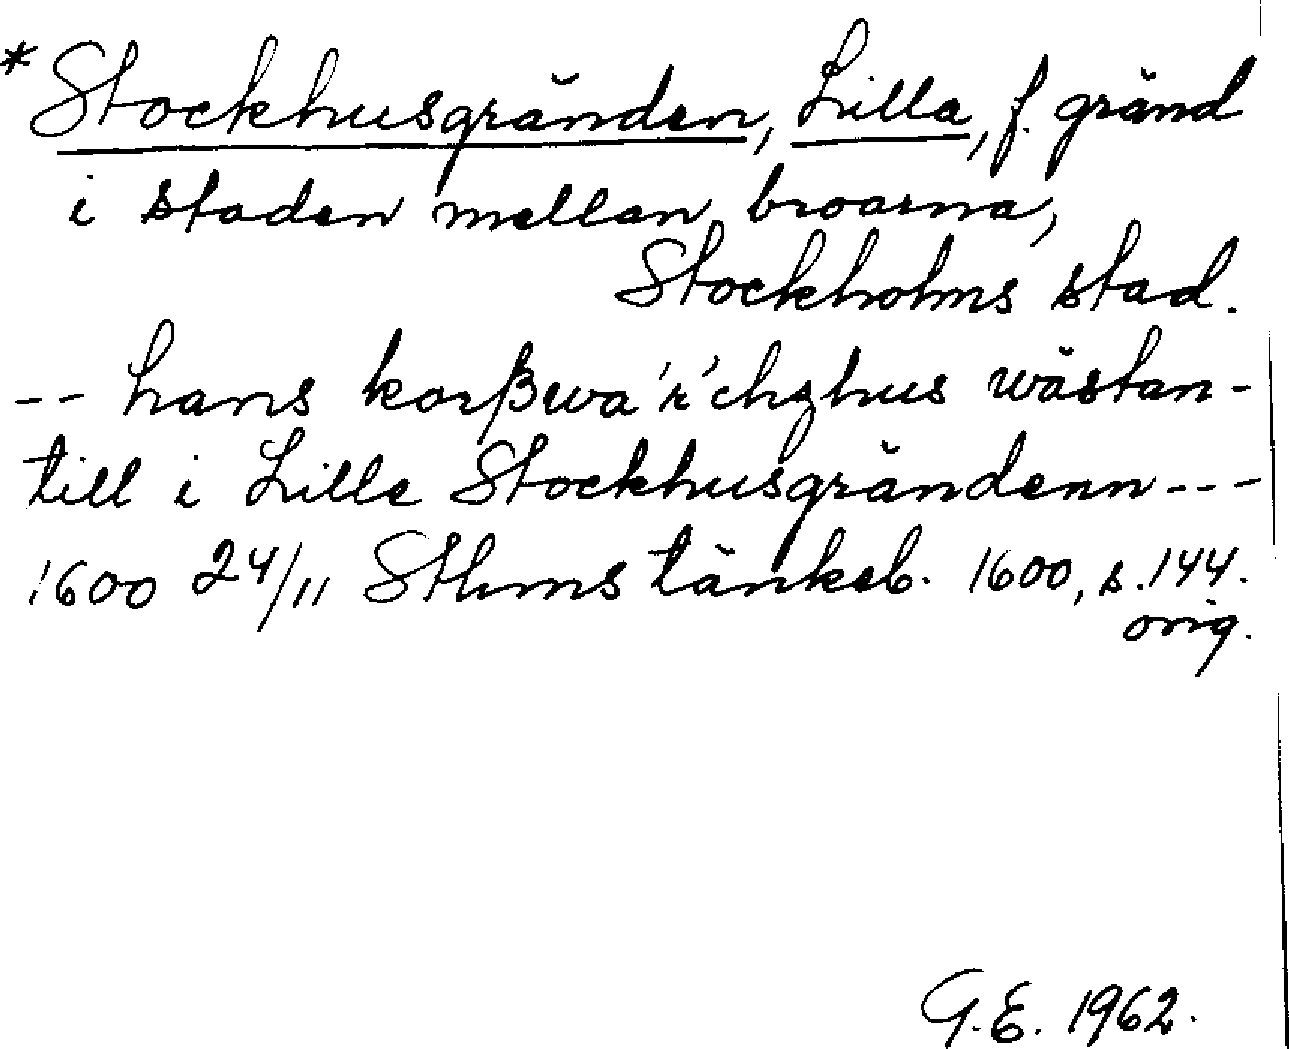 * Stockhusgränden, Lilla, f. gränd
i staden mellan broarna,
Stockholms stad.
-- hans korßwa'r'chzhus wästan-
till i Lille Stockhusgrändenn---
1600 24/11 Sthms tänkeb. 1600, s. 144.
orig.
G.E. 1962.